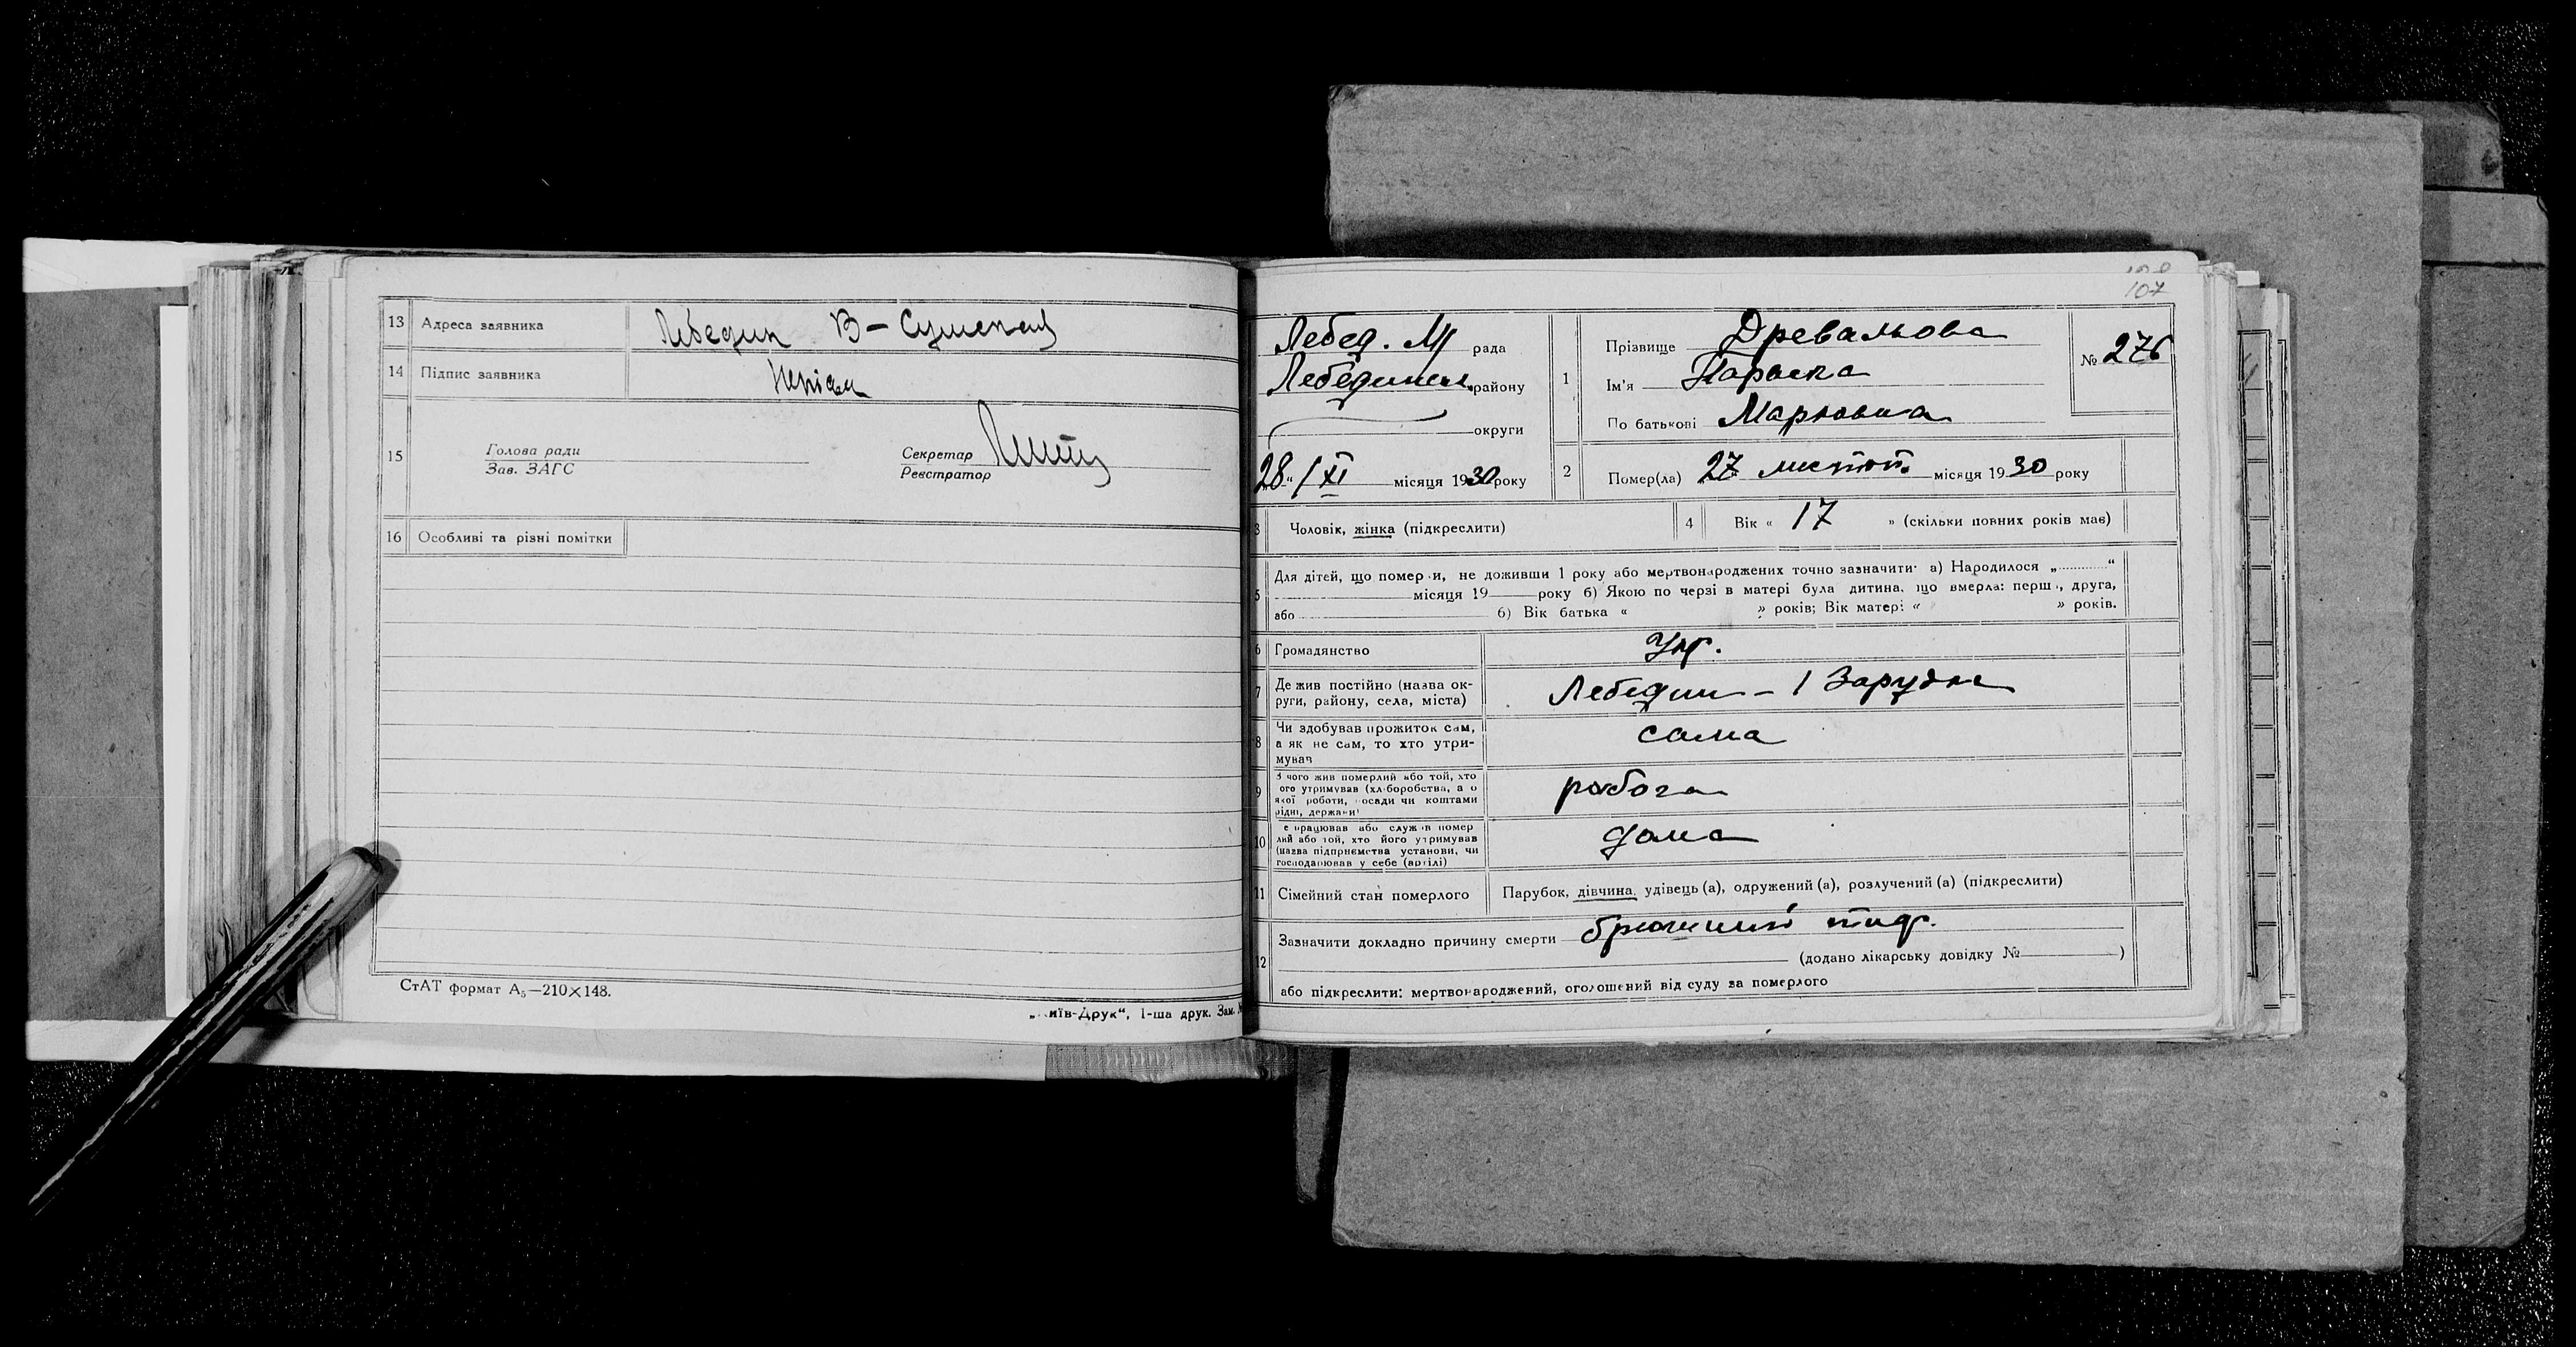 13 Адреса заявника Лебедин В-Сушекий
14 Підпис заявника
15 Голова ради
Зав. ЗАГС
Секретар
Реєстратор
16 Особливі та різні помітки
СтАТ формат А₅—210×148.
„Київ-Друк“, 1-ша друк. Зам. №
107
Лебед. М рада
Лебединськ. району
округи
28 " / XI місяця 1930 року
1 Прізвище Древальова
Ім'я Параска
По батькові Марковна
№ 276
2 Помер(ла) 27 листоп. місяця 1930 року
3 Чоловік, жінка (підкреслити)
4 Вік « 17 » (скільки повних років має)
5 Для дітей, що померли, не доживши 1 року або мертвонароджених точно зазначити: а) Народилося „ “
місяця 19 року б) Якою по черзі в матері була дитина, що вмерла: перша, друга,
або б) Вік батька « » років; Вік матері « » років.
6 Громадянство Укр.
7 Де жив постійно (назва ок-
руги, району, села, міста) Лебедин - 1 Зарудка
8 Чи здобував прожиток сам,
а як не сам, то хто утри-
мував сама
9 З чого жив померлий або той, хто
його утримував (хліборобства, а о
якої роботи, посади чи коштами
рідні, держави) робоча
10 Де працював або служив помер
лий або той, хто його утримував
(назва підприємства установи, чи
господарював у себе (артілі) дома
11 Сімейний стан померлого Парубок, дівчина, удівець (а), одружений (а), розлучений (а) (підкреслити)
12 Зазначити докладно причину смерти брюшний тиф.
(додано лікарську довідку № )
або підкреслити: мертвонароджений, оголошений від суду за померлого